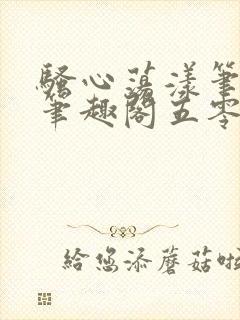 骚心荡漾笔
笔趣阁五零
给您添蘑菇啦